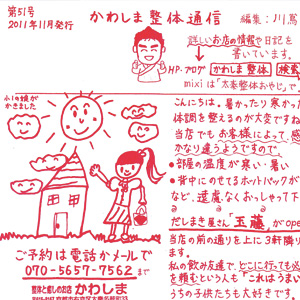 第51号
2011年11月発行
かわしま整体通信
編集：川島
詳しいお店の情報や日記を
書いています。
HP・ブログ かわしま整体 検索
mixiは「太秦整体おやじ」
こんにちは。暑かったり寒かっ
体調を整えるのが大変ですね
当店でもお客様によって、感
かなり違うようですので、
・部屋の温度が寒い・暑い
・背中にのせてるホットパックが
など、遠慮なくおっしゃって下
だしまき屋さん「玉藤」がope
当店の前の通りを上に3軒隣り
ます。
私の飲み友達で、どこに行っても必
を頼むという人も「これはうまい
うちの子供たちも大好きです。
小1の娘が
かきました
ご予約は電話かメールで
070-5657-7562まで
整体と癒しのお店 かわしま